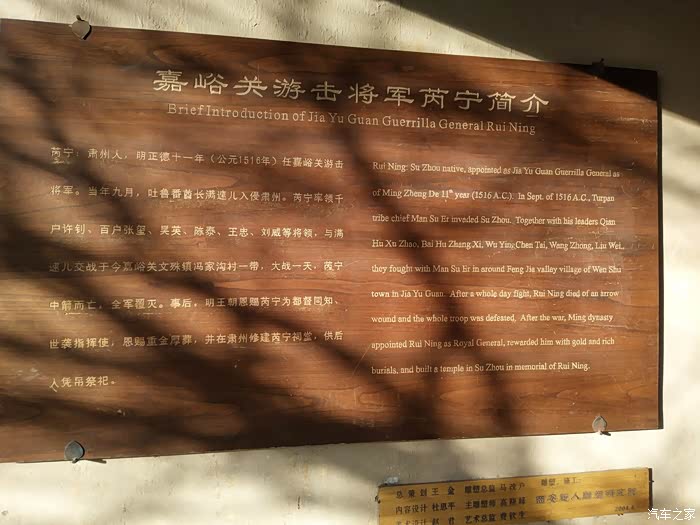 嘉峪关游击将军芮宁简介
Brief Introduction of Jia Yu Guan Guerrilla General Rui Ning
芮宁：肃州人，明正德十一年（公元1516年）任嘉峪关游击
将军。当年九月，吐鲁番酋长满速儿入侵肃州。芮宁率领千
户许钊、百户张玺、吴英、陈泰、王忠、刘威等将领，与满
速儿交战于今嘉峪关文殊镇冯家沟村一带，大战一天，芮宁
中箭而亡，全军覆灭。事后，明王朝恩赐芮宁为都督同知、
世袭指挥使，恩赐重金厚葬，并在肃州修建芮宁祠堂，供后
人凭吊祭祀。
Rui Ning: Su Zhou native, appointed as Jia Yu Guan Guerrilla General as
of Ming Zheng De 11th year (1516 A.C.). In Sept. of 1516 A.C., Turpan
tribe chief Man Su Er invaded Su Zhou. Together with his leaders Qian
Hu Xu Zhao, Bai Hu Zhang Xi, Wu Ying Chen Tai, Wang Zhong, Liu Wei,
they fought with Man Su Er in around Feng Jia valley village of Wen Shu
town in Jia Yu Guan. After a whole day fight, Rui Ning died of an arrow
wound and the whole troop was defeated. After the war, Ming dynasty
appointed Rui Ning as Royal General, rewarded him with gold and rich
burials, and built a temple in Su Zhou in memorial of Rui Ning.
总策划 王金 雕塑总监 马 雕塑、施工：
内容设计 杜思平 主雕塑师 高翔
艺术总监
汽车之家